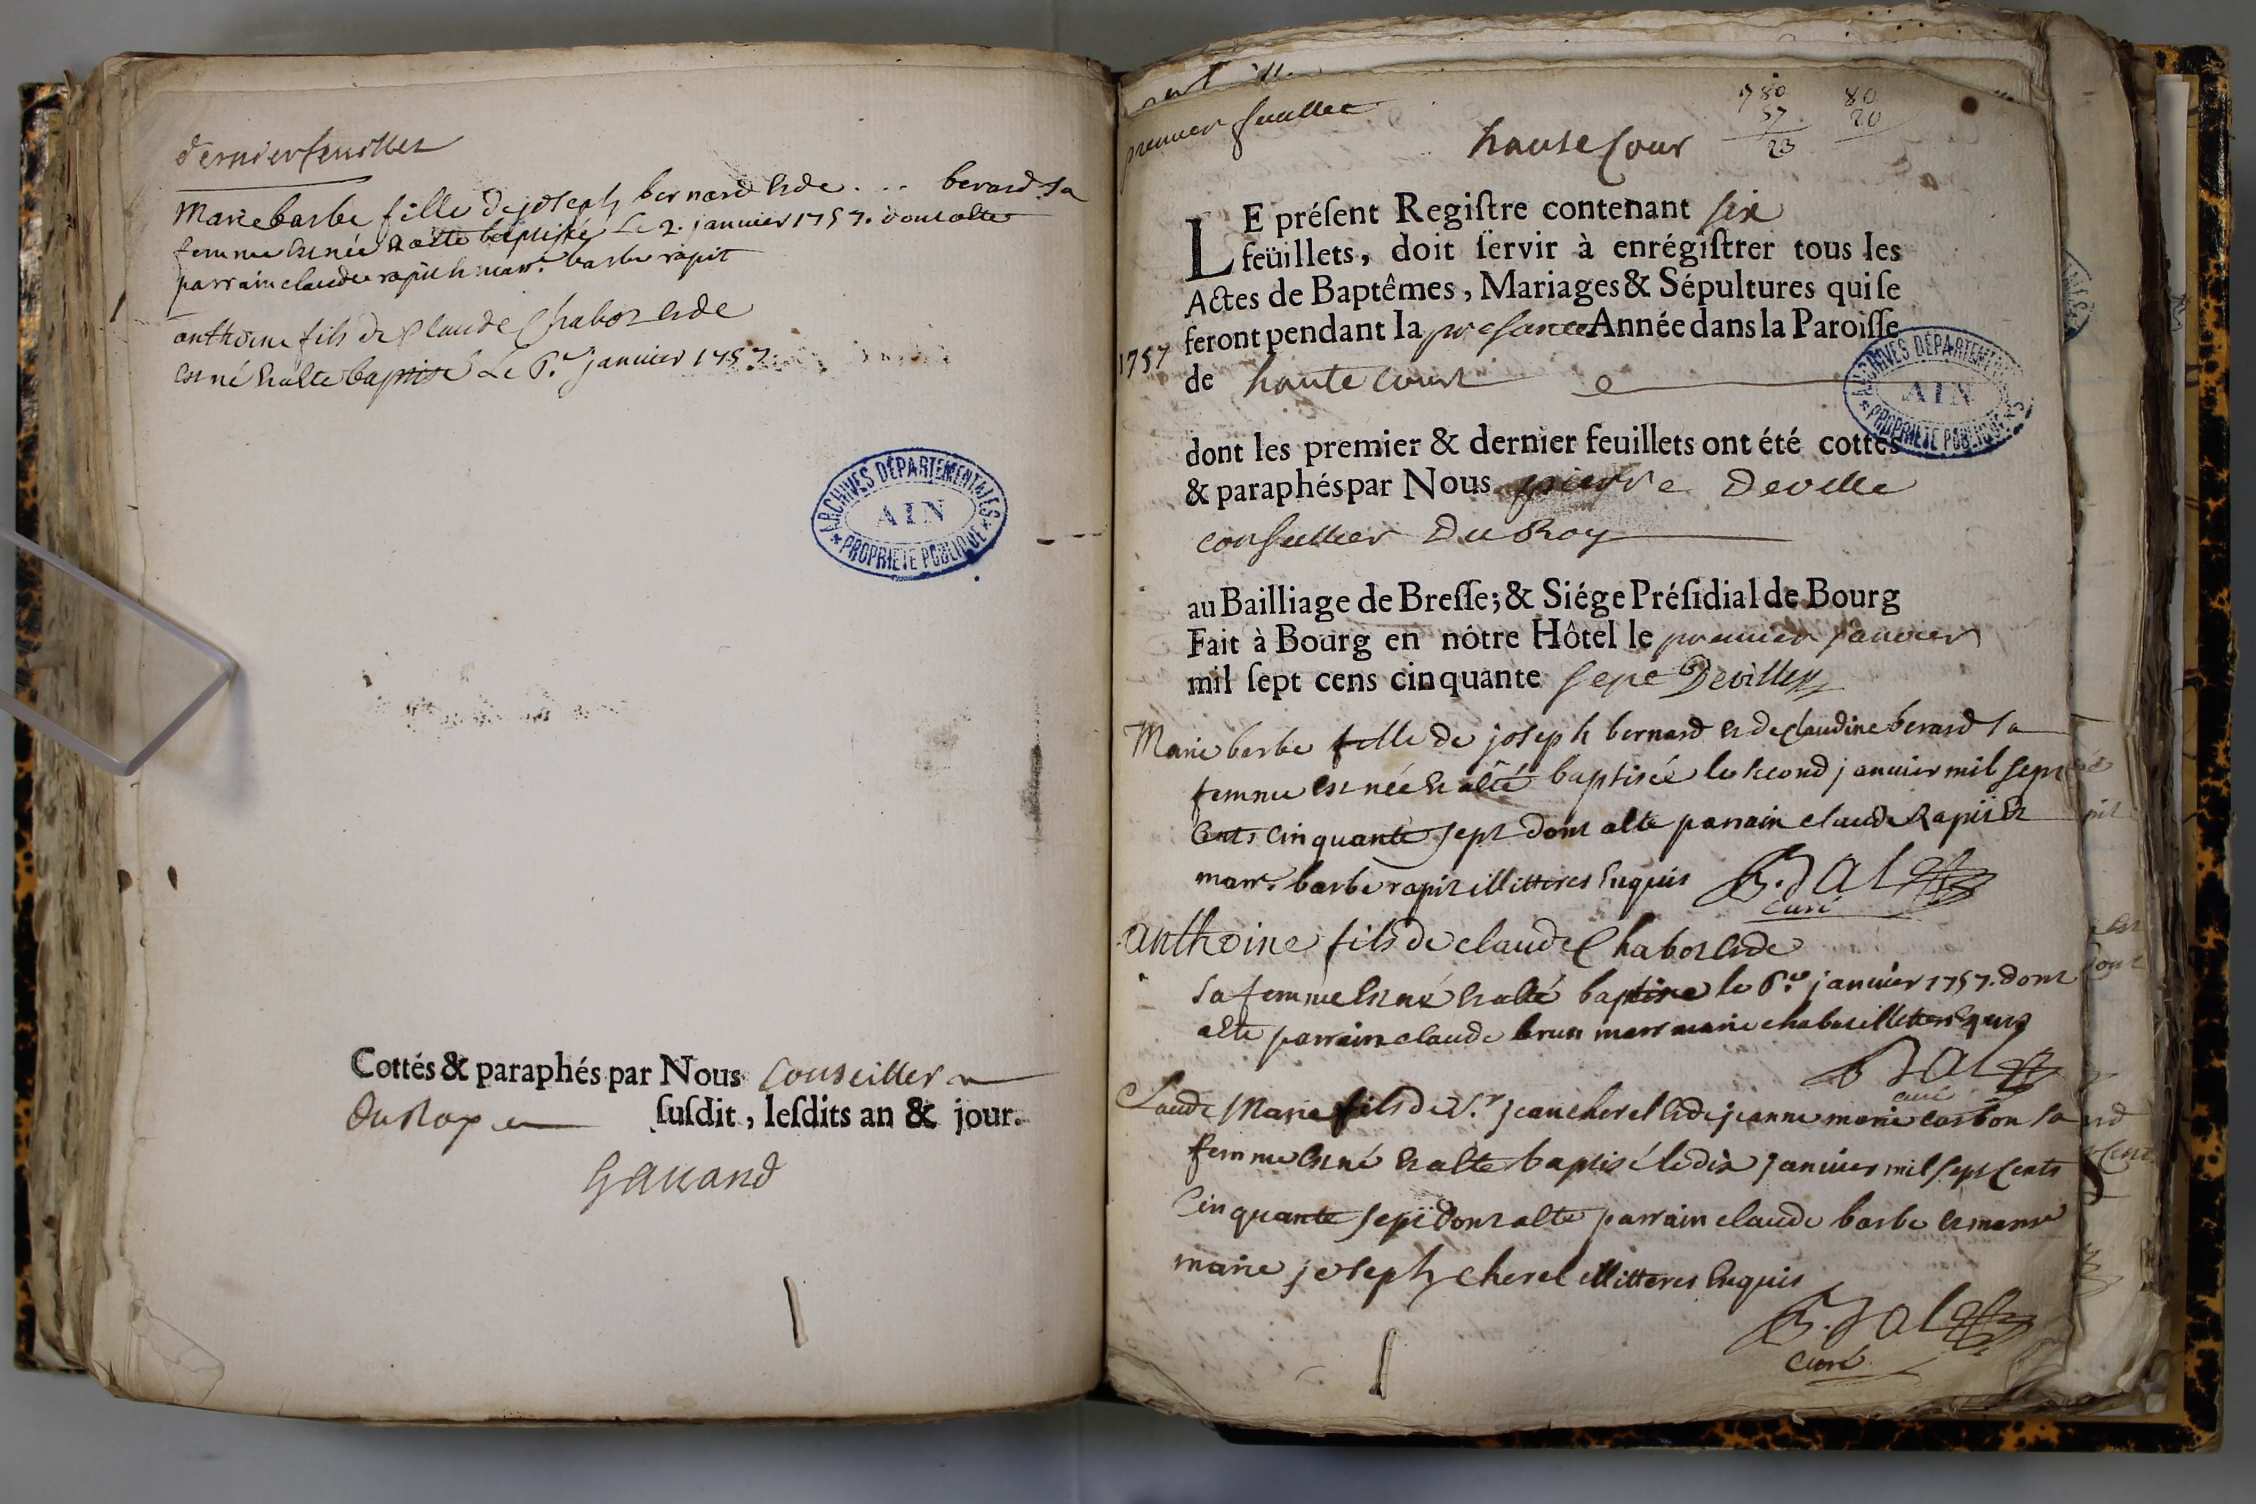 dernier feuillet
Marie barbe fille de joseph bernard et de ... berard sa
femme est née et a été baptisée le 2. janvier 1757. dont a été
parrain claude rapit et marr. barbe rapit
anthoine fils de Claude Chabot et de
est né et a été baptisé Le 6.e janvier 1757.
ARCHIVES DÉPARTEMENTALES
AIN
PROPRIÉTÉ PUBLIQUE
Cottés & paraphés par Nous Conseiller
du Roy suſdit, leſdits an & jour.
premier feuillet
haute Cour
780 80
57 20
23
LE préſent Regiſtre contenant six
feüillets, doit ſervir à enrégiſtrer tous les
Actes de Baptêmes, Mariages & Sépultures qui ſe
feront pendant la presante Année dans la Paroiſſe
1757
de haute court
ARCHIVES DÉPARTEMENTALES
AIN
PROPRIÉTÉ PUBLIQUE
dont les premier & dernier feuillets ont été cottés
& paraphés par Nous pierre Deville
conseiller Du Roy
au Bailliage de Breſſe; & Siége Préſidial de Bourg
Fait à Bourg en nôtre Hôtel le premier janvier
mil ſept cens cinquante sept Deville
Marie barbe fille de joseph bernard et de Claudine berard sa
femme est née et a été baptisée le second janvier mil sept
Cents cinquante sept dont a été parrain claude Rapit et
marr. barbe rapit illitteres Enquis
curé
anthoine fils de claude Chabot et de
sa femme est né et a été baptisé le 6.e janvier 1757. dont
a été parrain claude brun marr marie chabot illitteres Enquis
curé
Claude Marie fils de S.r jean cherel et de jeanne marie carbon sa
femme est né et a été baptisé le dix janvier mil sept Cents
Cinquante sept dont a été parrain claude barbe et marre
marie joseph cherel illitteres Enquis
curé